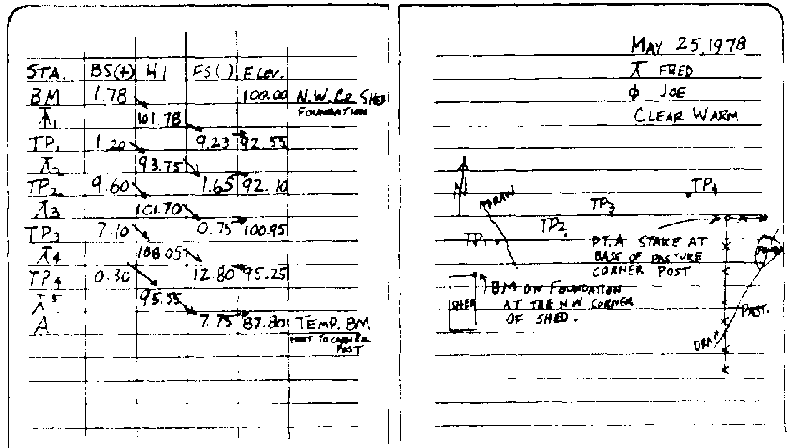 STA. BS(+) HI FS( ) ELEV.
BM 1.78 100.00 N.W. Co SHED
FOUNDATION
⊼1 101.78
TP1 1.20 9.23 92.55
⊼2 93.75
TP2 9.60 1.65 92.10
⊼3 101.70
TP3 7.10 0.75 100.95
⊼4 108.05
TP4 0.30 12.80 95.25
⊼5 95.55
A 7.75 87.80 TEMP. BM.
NEXT TO CORNER
POST
MAY 25, 1978
⊼ FRED
ϕ JOE
CLEAR WARM
N
DRAW
TP1
TP2
TP3
TP4
PT. A STAKE AT
BASE OF PASTURE
CORNER POST
SHED
BM ON FOUNDATION
AT THE NW CORNER
OF SHED.
PAST.